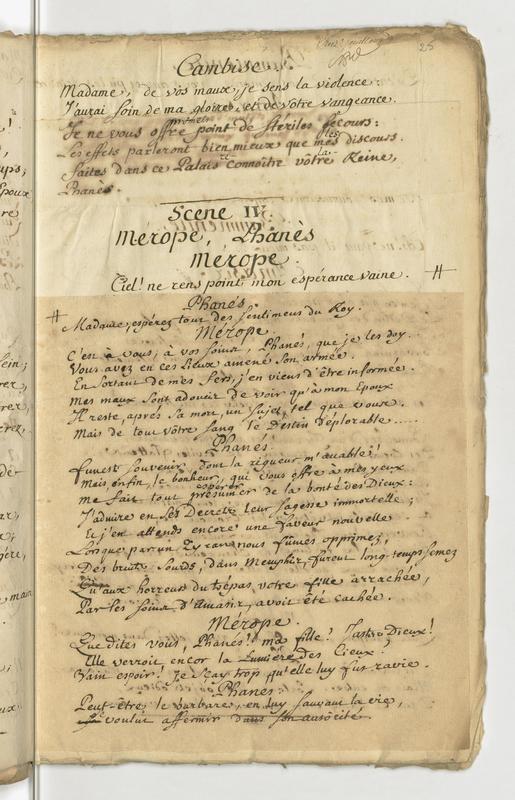 25
Cambise.
Madame, de vos maux, je sens la violence:
J'aurai soin de ma gloire, et de vôtre vangeance.
Je ne vous offre point de stériles secours:
Les effets parleront bien mieux que mes discours.
Faites dans ce Palais connoître vôtre Reine,
Phanès.
Scene IV.
Mérope, Phanès
Mérope.
Ciel! ne rens point mon espérance vaine. #
Phanès.
# Madame, espérez tout des sentimens du Roy.
Mérope.
C'est à vous, à vos soins, Phanés, que je les doy.
Vous avez en ces Lieux amené son armée.
En sortant de mes Fers, j'en viens d'être informée.
Mes maux sont adoucis de voir qu'à mon Epoux
Il reste, après sa mort, un sujet tel que vous.
Mais de tout vôtre sang le Destin déplorable.....
Phanés.
Funeste souvenir, dont la rigueur m'accable!
Mais enfin, le bonheur, qui vous offre à mes yeux
espérer
Me fait tout présumer de la bonté des Dieux:
J'admire en ses Decrets leur sagesse immortelle;
Et j'en attends encore une faveur nouvelle
Lorsque par un Tyran nous fûmes opprimez,
Des bruits sourds, dans Memphis, furent long-temps semez
Qu'aux horreurs du trépas votre fille arrachée,
Par les soins d'Amasis, avoit été cachée.
Mérope.
Que dites vous, Phanès! ma fille? Justes Dieux!
Elle verroit encor la Lumiére des Cieux!
Vain espoir! Je sçay trop qu'elle luy fut ravie.
Phanès
Peut-être, le barbare, en luy sauvant la vie,
voulut affermir dans son autorité.